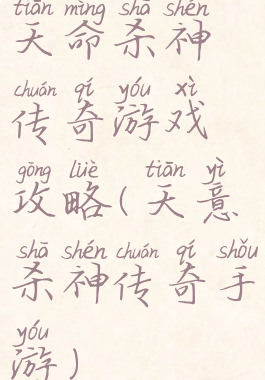 tiān mìng shā shén
天命杀神
chuán qí yóu xì
传奇游戏
gōng lüè tiān yì
攻略(天意
shā shén chuán qí shǒu
杀神传奇手
yóu
游)